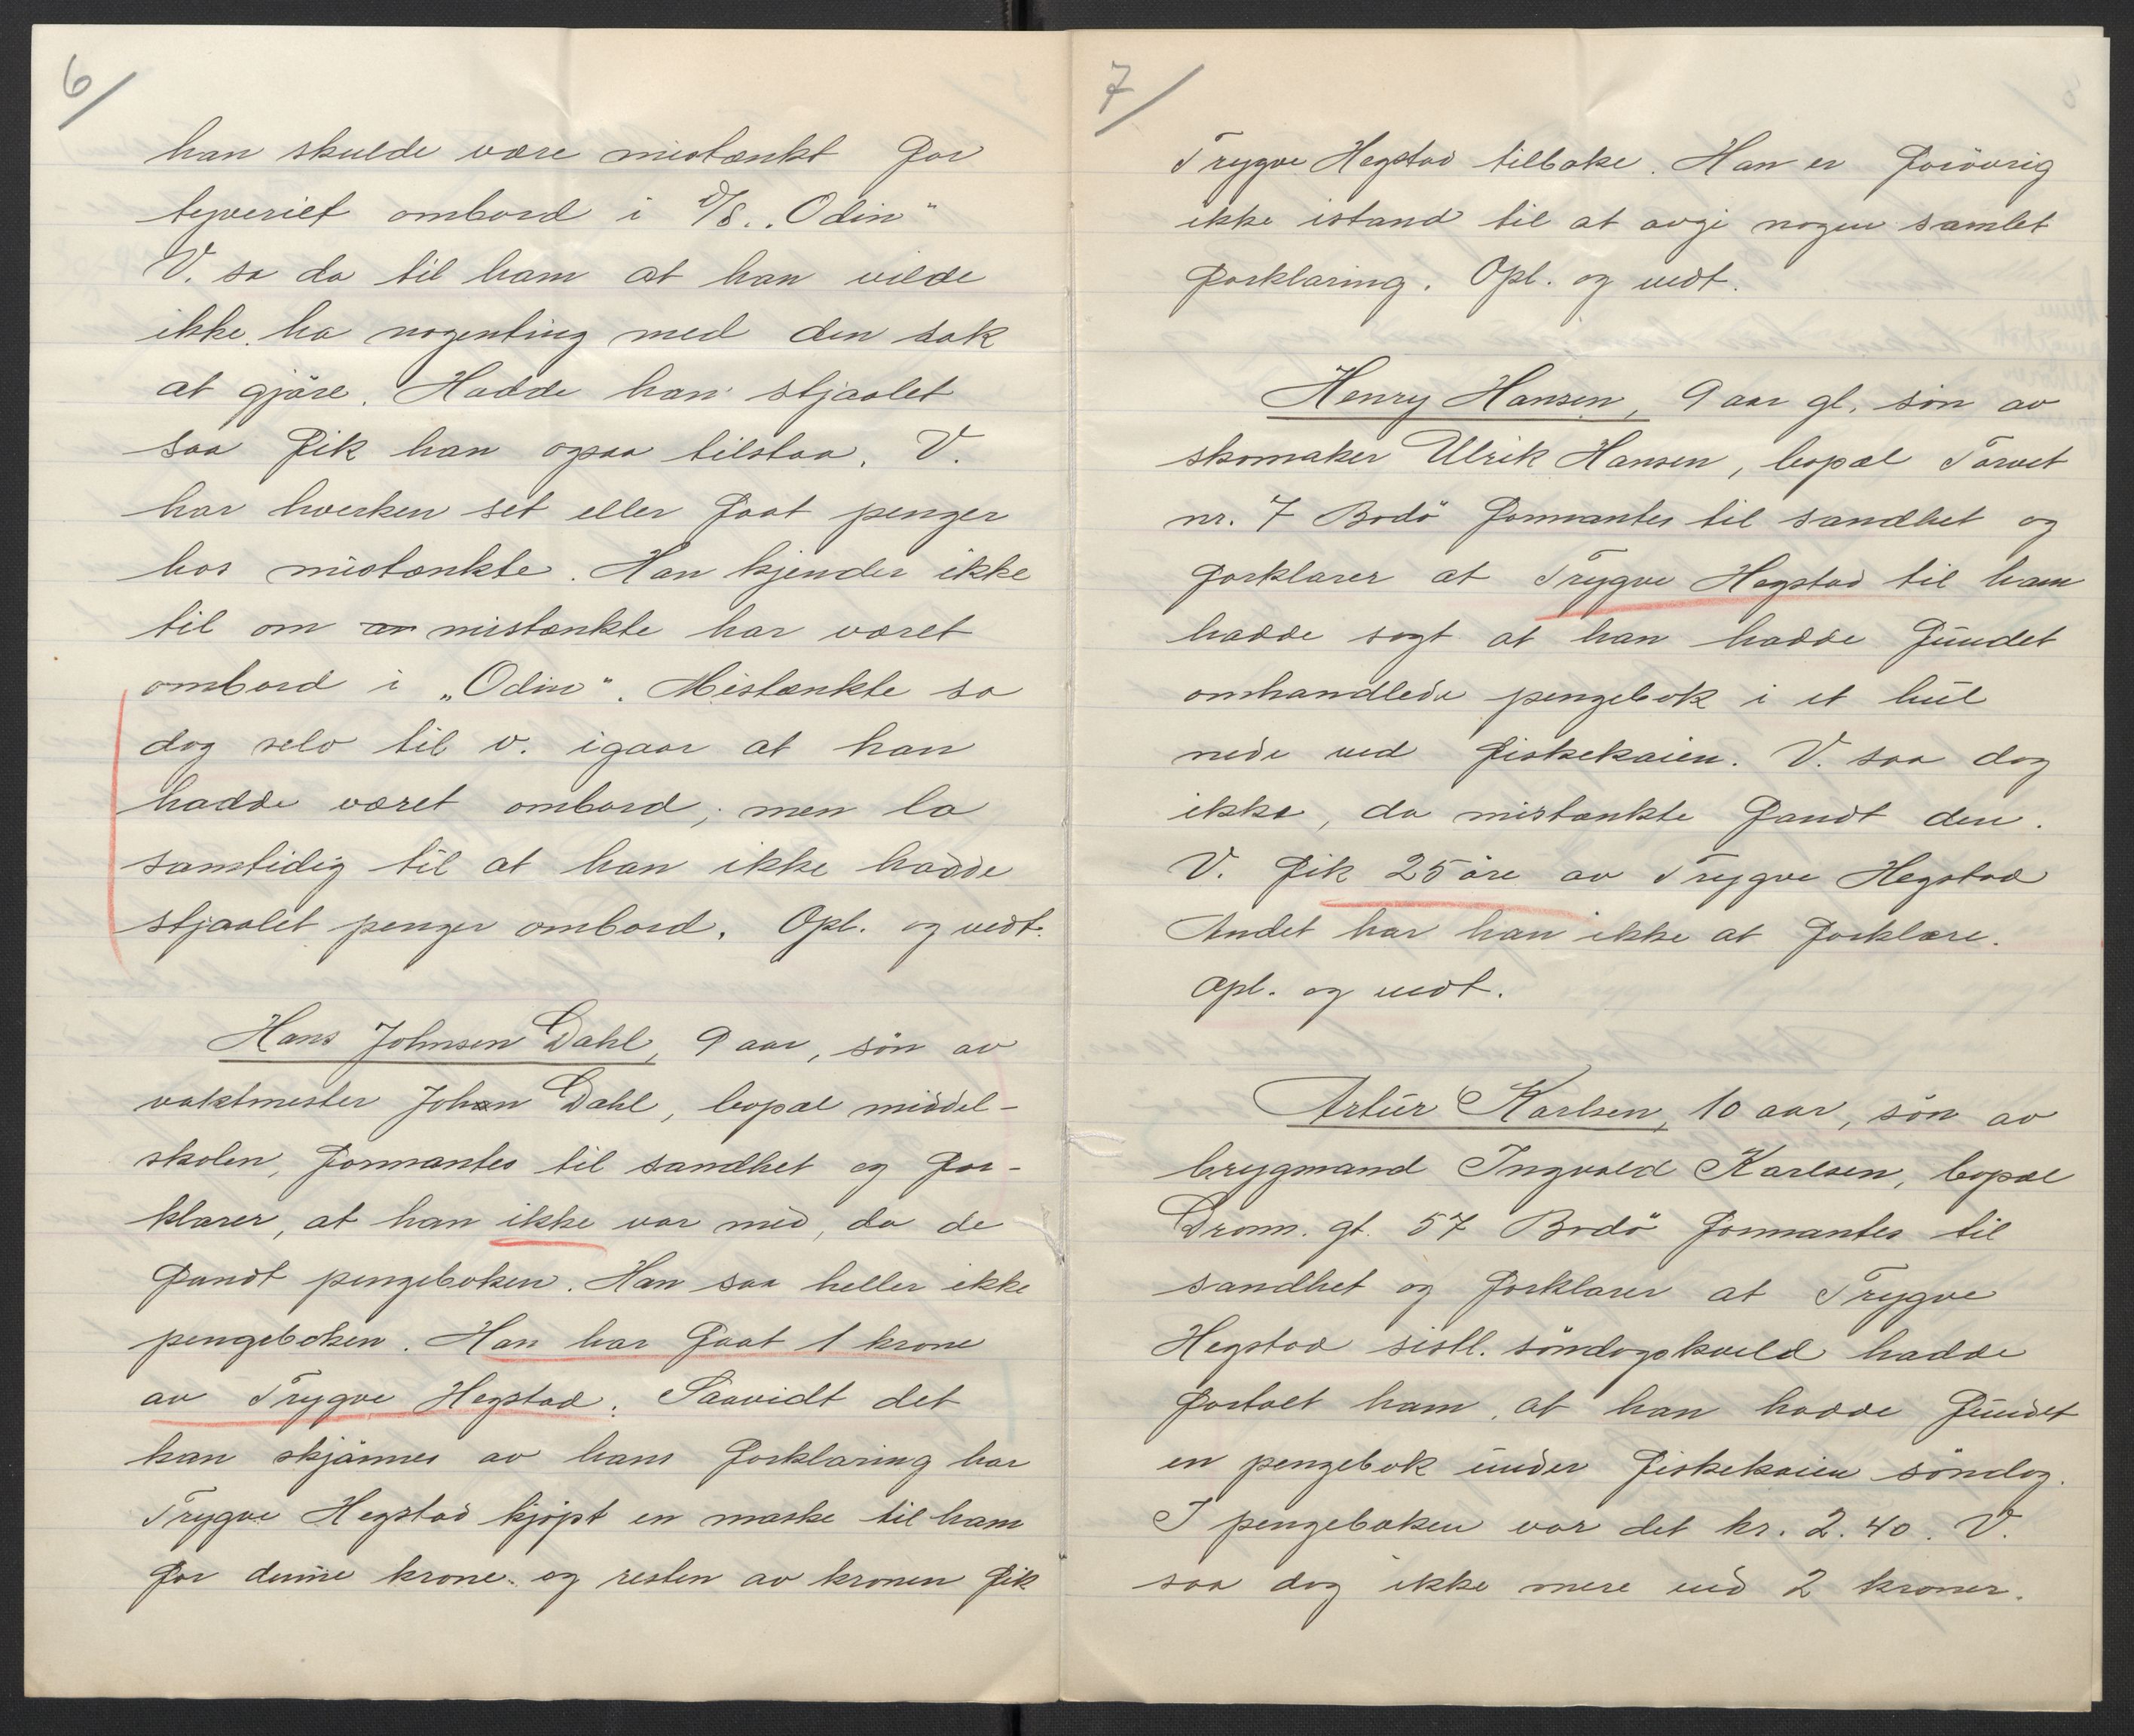 6/
han skulde være mistænkt for
tyveriet ombord i D/S. „Odin"
V. sa da til ham at han vilde
ikke ha nogenting med den sak
at gjöre. Hadde han stjaalet
saa fik han ogsaa tilstaa. V.
har hverken set eller faat penger
hos mistænkte. Han kjender ikke
til om an mistænkte har været
ombord i „Odin". Mistænkte sa
dog selv til v. igaar at han
hadde været ombord; men la
samtidig til at han ikke hadde
stjaalet penger ombord. Opl. og vedt.
Hans Johnsen Dahl, 9 aar, sön av
vaktmester Johan Dahl, bopæl middel-
skolen, formantes til sandhet og for-
klarer, at han ikke var med, da de
fandt pengeboken. Han saa heller ikke
pengeboken. Han har faat 1 krone
av Trygve Hegstad. Saavidt det
kan skjönnes av hans forklaring har
Trygve Hegstad kjöpt en maske til ham
for denne krone og resten av kronen fik
7/
Trygve Hegstad tilbake. Han er forövrig
ikke istand til at avgi nogen samlet
forklaring. Opl. og vedt.
Henry Hansen, 9 aar gl. sön av
skomaker Ulrik Hansen, bopæl Torvet
nr. 7 Bodö formantes til sandhet og
forklarer at Trygve Hegstad til ham
hadde sagt at han hadde fundet
omhandlede pengebok i et hul
nede ved fiskekaien. V. saa dog
ikke, da mistænkte fandt den.
V. fik 25 öre av Trygve Hegstad
Andet har han ikke at forklare.
Opl. og vedt.
Artur Karlsen, 10 aar, sön av
bryggmand Ingvald Karlsen, bopæl
Dronn. gt. 57 Bodö formantes til
sandhet og forklarer at Trygve
Hegstad sistl. söndagskveld hadde
fortalt ham, at han hadde fundet
en pengebok under fiskekaien söndag.
I pengeboken var det kr. 2.40. V.
saa dog ikke mere end 2 kroner.